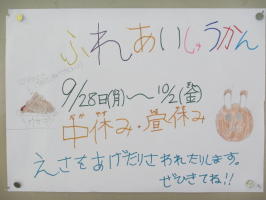 ふれあいしゅうかん
9/28日(月)～10/2(金)
中休み・昼休み
えさをあげたりさわれたりします。
ぜひきてね!!